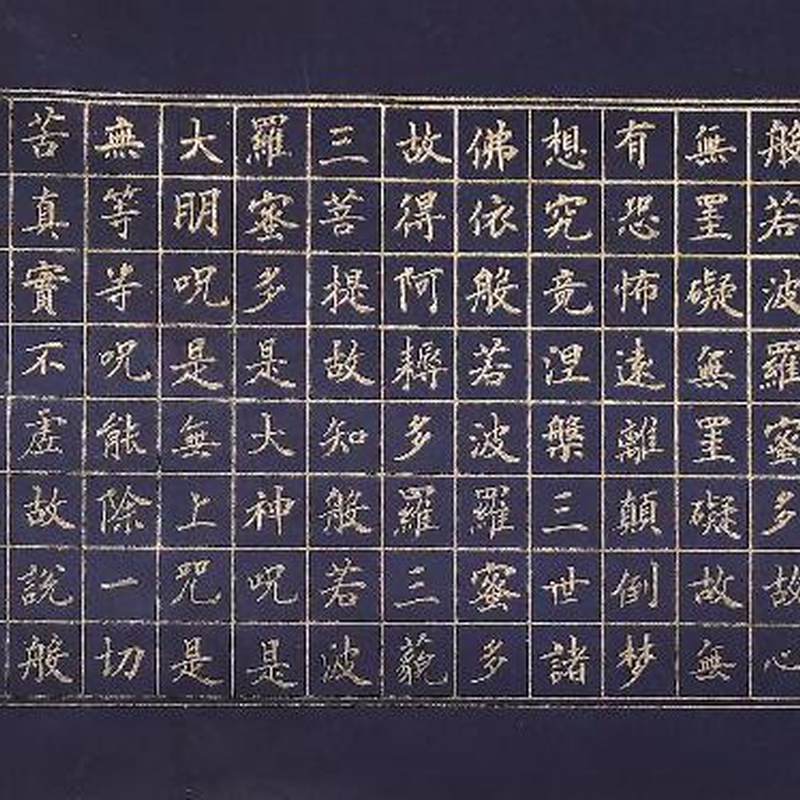 般若波羅蜜多故心
無罣礙無罣礙故無
有恐怖遠離顛倒梦
想究竟涅槃三世諸
佛依般若波羅蜜多
故得阿耨多羅三藐
三菩提故知般若波
羅蜜多是大神呪是
大明呪是無上咒是
無等等呪能除一切
苦真實不虛故說般